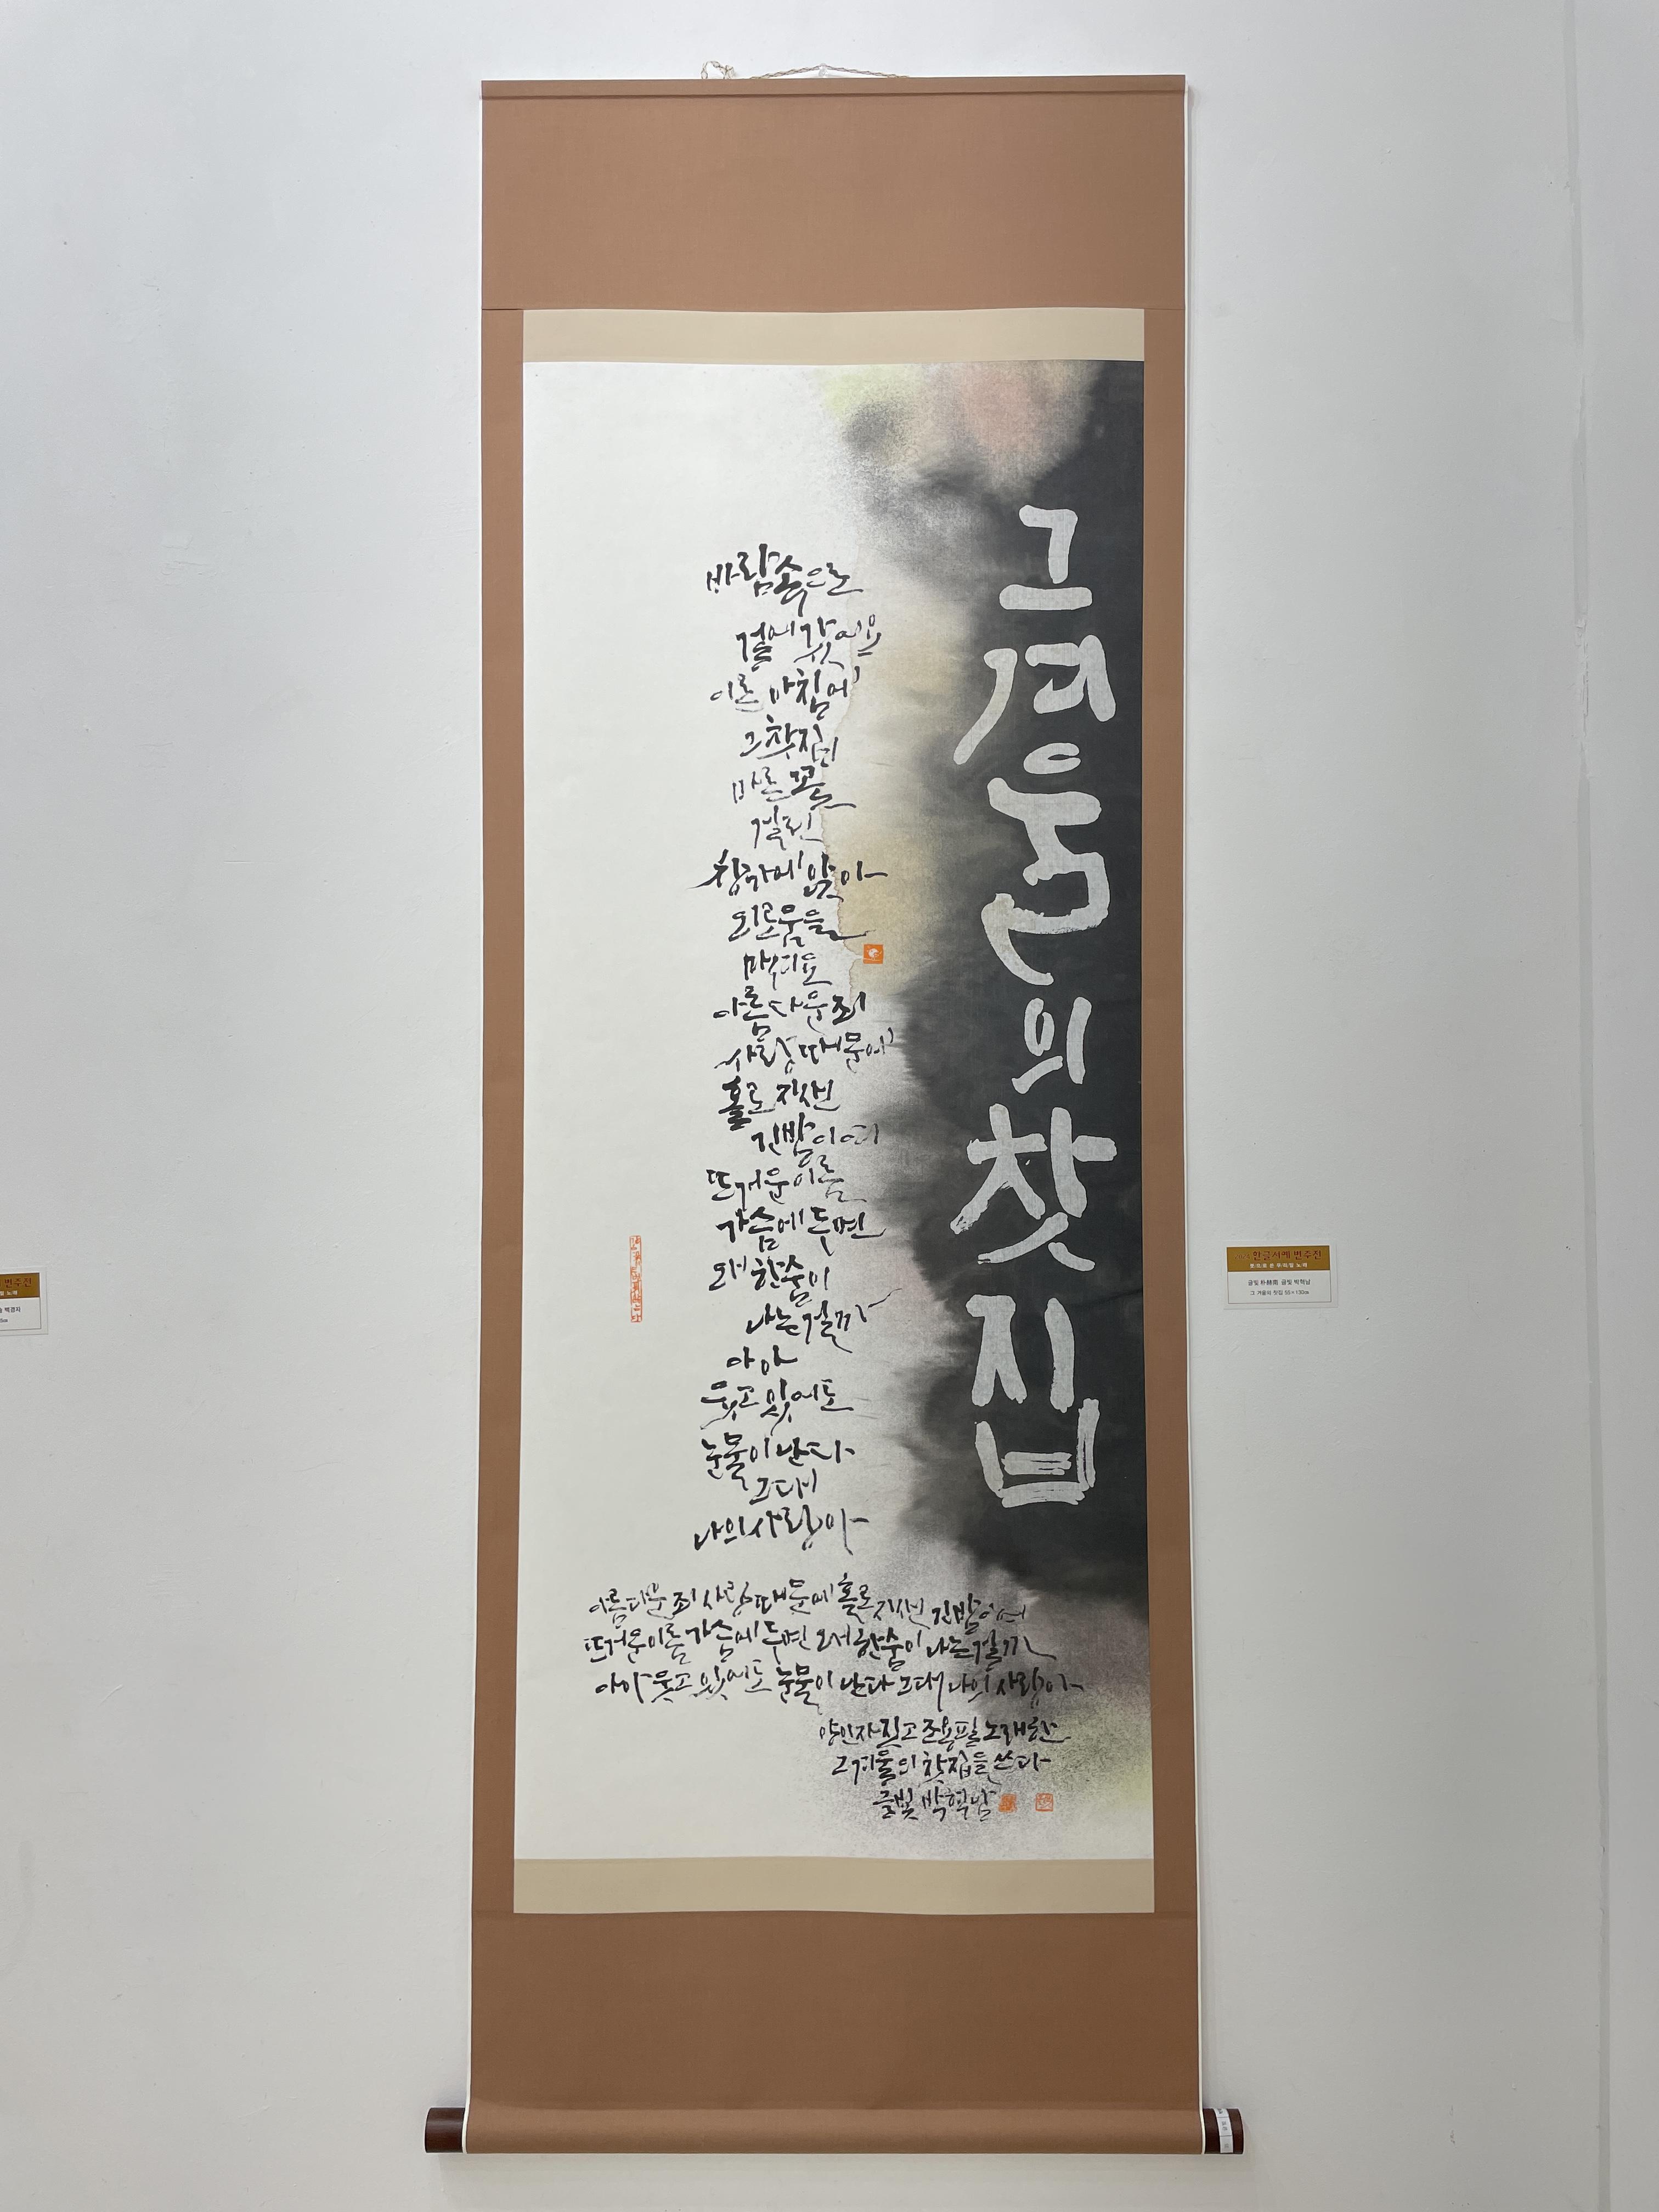 그 겨울의 찻집
바람속으로
걸어갔어요
이른 아침에
그 찻집
마른 꽃
걸린
창가에 앉아
외로움을
마셔요
아름다운 죄
사랑 때문에
홀로 지샌
긴 밤이여
뜨거운 이름
가슴에 두면
왜 한숨이
나는 걸까
아아
웃고 있어도
눈물이 난다
그대
나의 사랑아
아름다운 죄 사랑 때문에 홀로 지샌 긴 밤이여
뜨거운 이름 가슴에 두면 왜 한숨이 나는 걸까
아아 웃고 있어도 눈물이 난다 그대 나의 사랑아
양인자 짓고 조용필 노래한
그 겨울의 찻집을 쓰다
글빛 박혁남
한글서예 변주전
글빛 박혁남
그 겨울의 찻집 55×130㎝
변주전
백경자